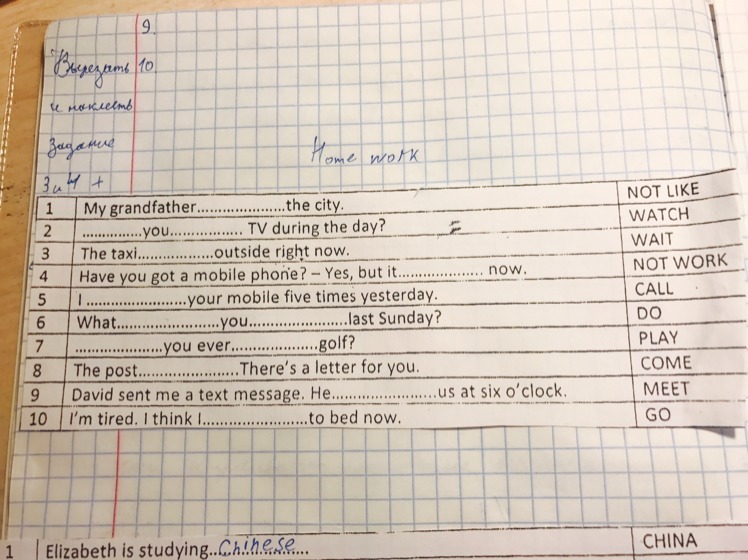 9.
Вырезать 10.
и наклеить
Задание
3 и 4 +
Home work
1 My grandfather......................the city. NOT LIKE
2 ...............you.................. TV during the day? WATCH
3 The taxi...................outside right now. WAIT
4 Have you got a mobile phone? – Yes, but it..................... now. NOT WORK
5 I .........................your mobile five times yesterday. CALL
6 What..........................you.........................last Sunday? DO
7 ......................you ever......................golf? PLAY
8 The post.........................There's a letter for you. COME
9 David sent me a text message. He...........................us at six o'clock. MEET
10 I'm tired. I think I...........................to bed now. GO
1 Elizabeth is studying..Chinese... CHINA